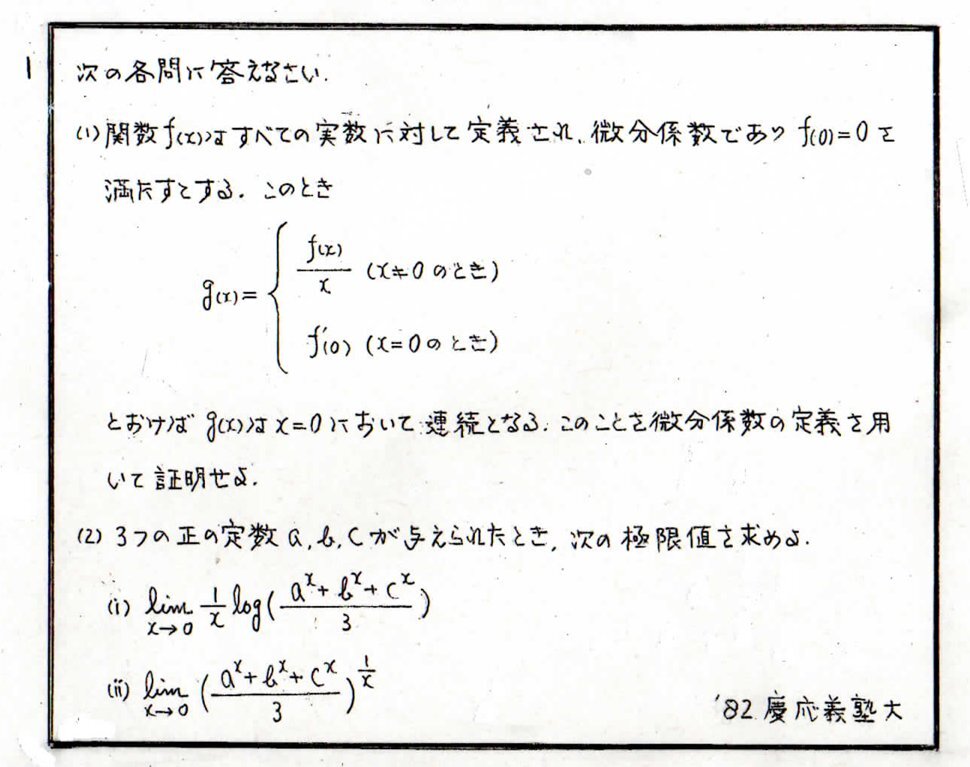 1 次の各問に答えなさい.
(1) 関数 f(x) はすべての実数に対して定義され, 微分係数であり f(0)=0 を
満たすとする. このとき
g(x) = { f(x)/x (x≠0 のとき)
f'(0) (x=0 のとき)
とおけば g(x) は x=0 において連続となる. このことを微分係数の定義を用
いて証明せよ.
(2) 3つの正の定数 a, b, c が与えられたとき, 次の極限値を求めよ.
(i) lim x→0 1/x log( (a^x + b^x + c^x)/3 )
(ii) lim x→0 ( (a^x + b^x + c^x)/3 )^(1/x)
'82 慶応義塾大